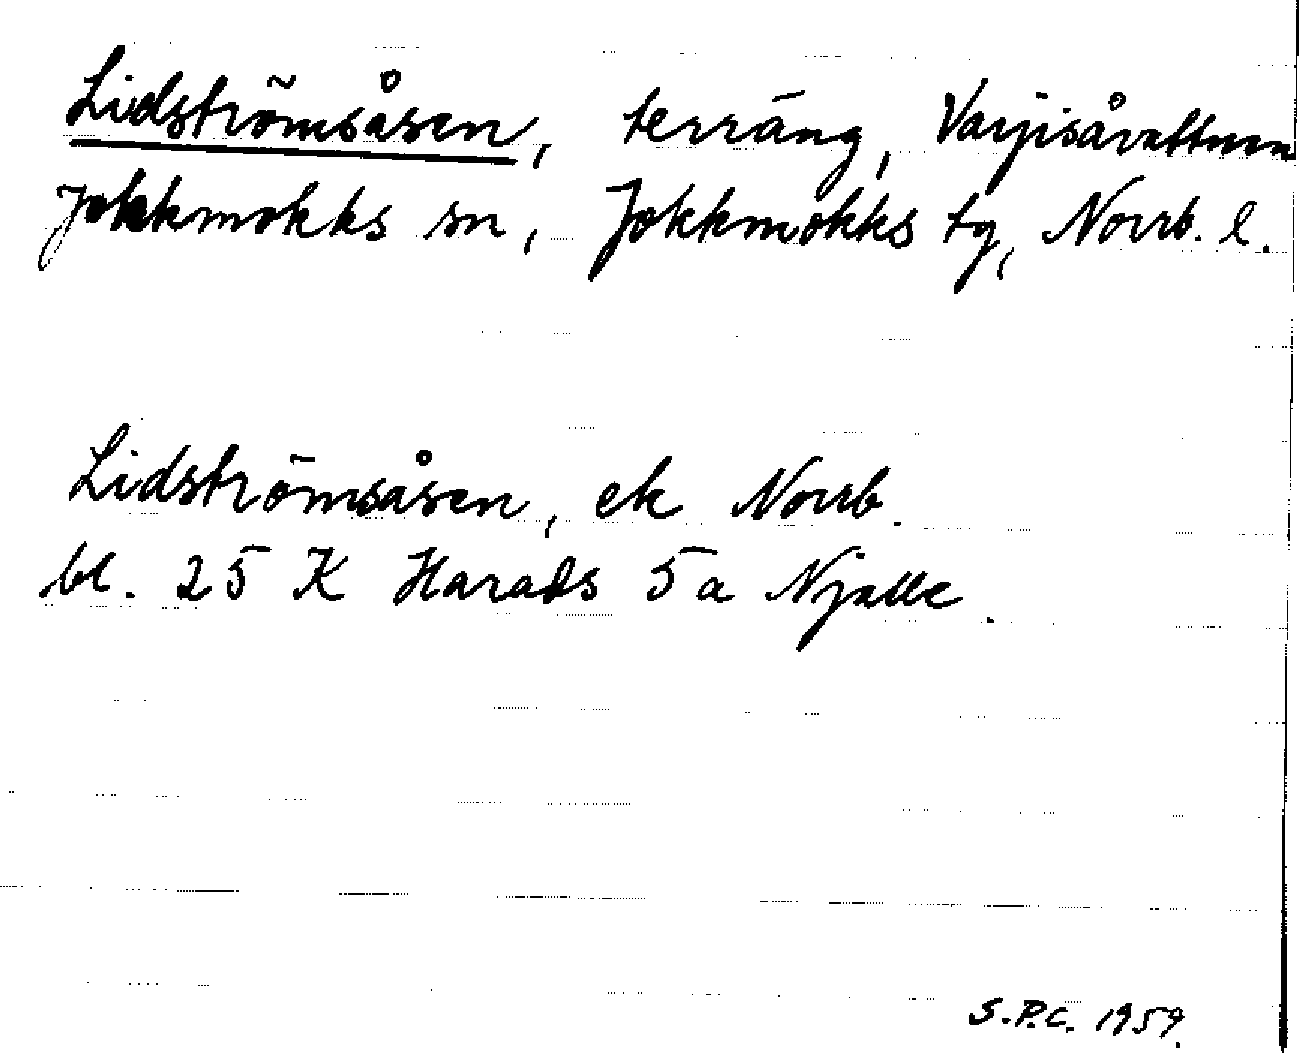 Lidströmsåsen, terräng, Varjisåvattnen
Jokkmokks sn, Jokkmokks tg, Norrb. l.
Lidströmsåsen, ek Norrb.
bl. 25 K Harads 5a Njalle.
S.P.C. 1959.